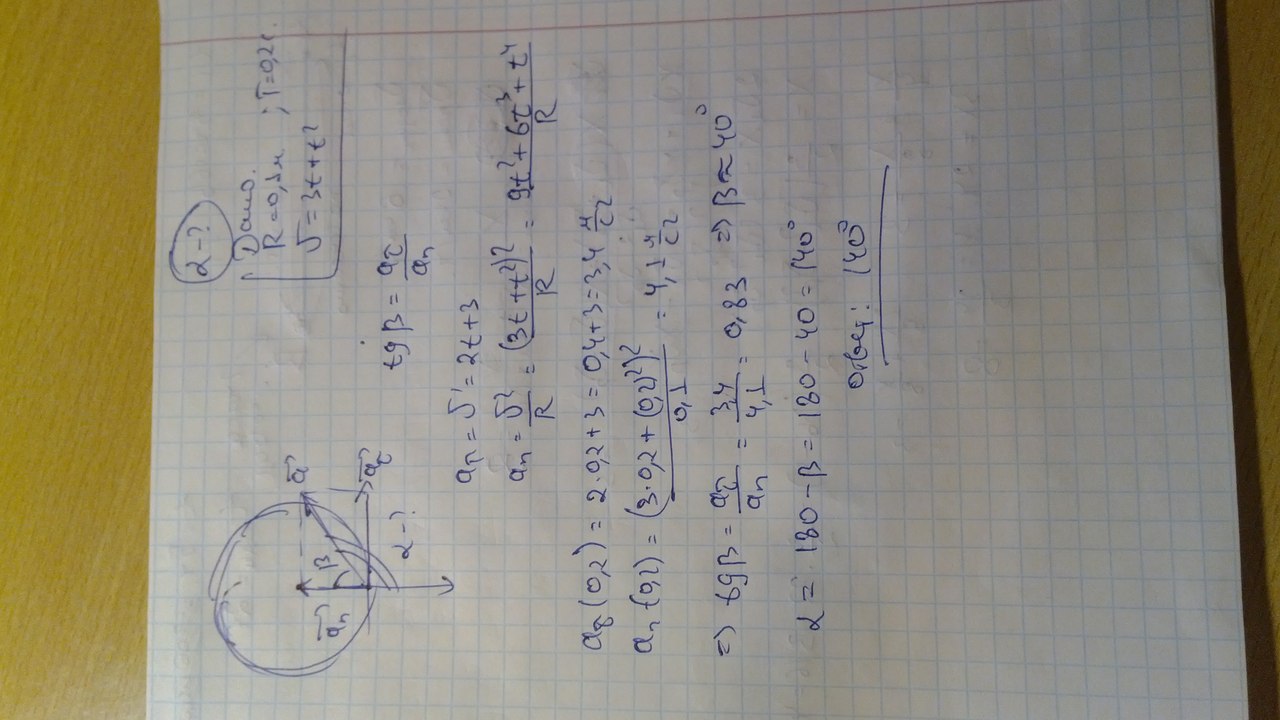 α-?
Дано.
R=0,1м ; T=0,2с
υ=3t+t²
a⃗
a⃗n
β
a⃗τ
α-?
tgβ = aτ/an
aτ = υ' = 2t+3
an = υ²/R = (3t+t²)²/R = 9t²+6t³+t⁴/R
aτ(0,2) = 2·0,2+3 = 0,4+3 = 3,4 м/с²
an(0,2) = (3·0,2+(0,2)²)²/0,1 = 4,1 м/с²
=> tgβ = aτ/an = 3,4/4,1 = 0,83 => β≈40°
α = 180-β = 180-40 = 140°
Ответ: 140°